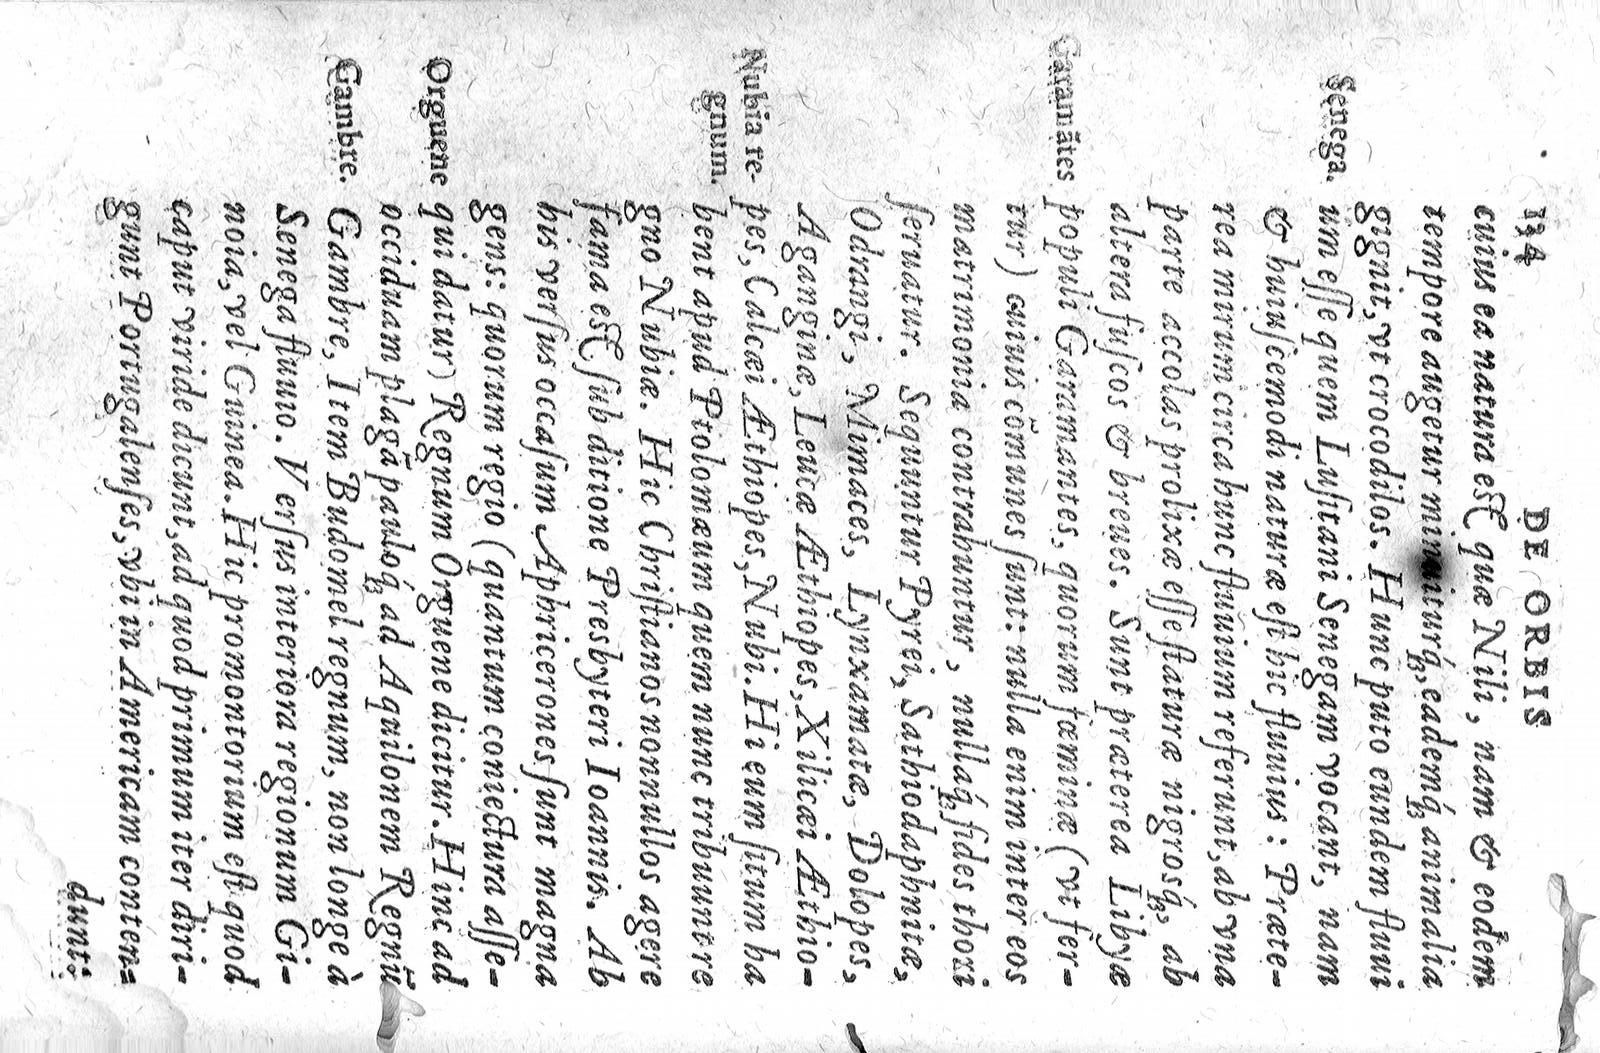 134 DE ORBIS
cuius ea natura est quæ Nili, nam & eodem
tempore augetur minuiturq́ꝫ, eademq́ꝫ animalia
gignit, vt crocodilos. Hunc puto eundem fluui
Senega. um esse quem Lusitani Senegam vocant, nam
& huiuscemodi naturæ est hic fluuius: Præte-
rea mirum circa hunc fluuium referunt, ab vna
parte accolas prolixæ esse staturæ nigrosq́ꝫ, ab
altera fuscos & breues. Sunt præterea Libyæ
Garamātes populi Garamantes, quorum fœminæ (vt fer-
tur) cuiuis cōmunes sunt: nulla enim inter eos
matrimonia contrahuntur, nullaq́ꝫ fides thori
seruatur. Sequuntur Pyrei, Sathiodaphnitæ,
Odrangi, Mimaces, Lynxamatæ, Dolopes,
Aganginæ, Leucæ Æthiopes, Xilicæi Æthio-
Nubia re- pes, Calcæi Æthiopes, Nubi. Hi eum situm ha
gnum. bent apud Ptolomæum quem nunc tribuunt re
gno Nubiæ. Hic Christianos nonnullos agere
fama est sub ditione Presbyteri Ioannis. Ab
his versus occasum Aphricerones sunt magna
gens: quorum regio (quantum coniectura asse-
Orguene qui datur) Regnum Orguene dicitur. Hinc ad
occiduam plagā pauloq́ꝫ ad Aquilonem Regnū
Gambre. Gambre, Item Budomel regnum, non longe à
Senega fluuio. Versus interiora regionum Gi-
noia, vel Guinea. Hic promontorium est quod
caput viride dicunt, ad quod primum iter diri-
gunt Portugalenses, vbi in Americam conten-
dunt: